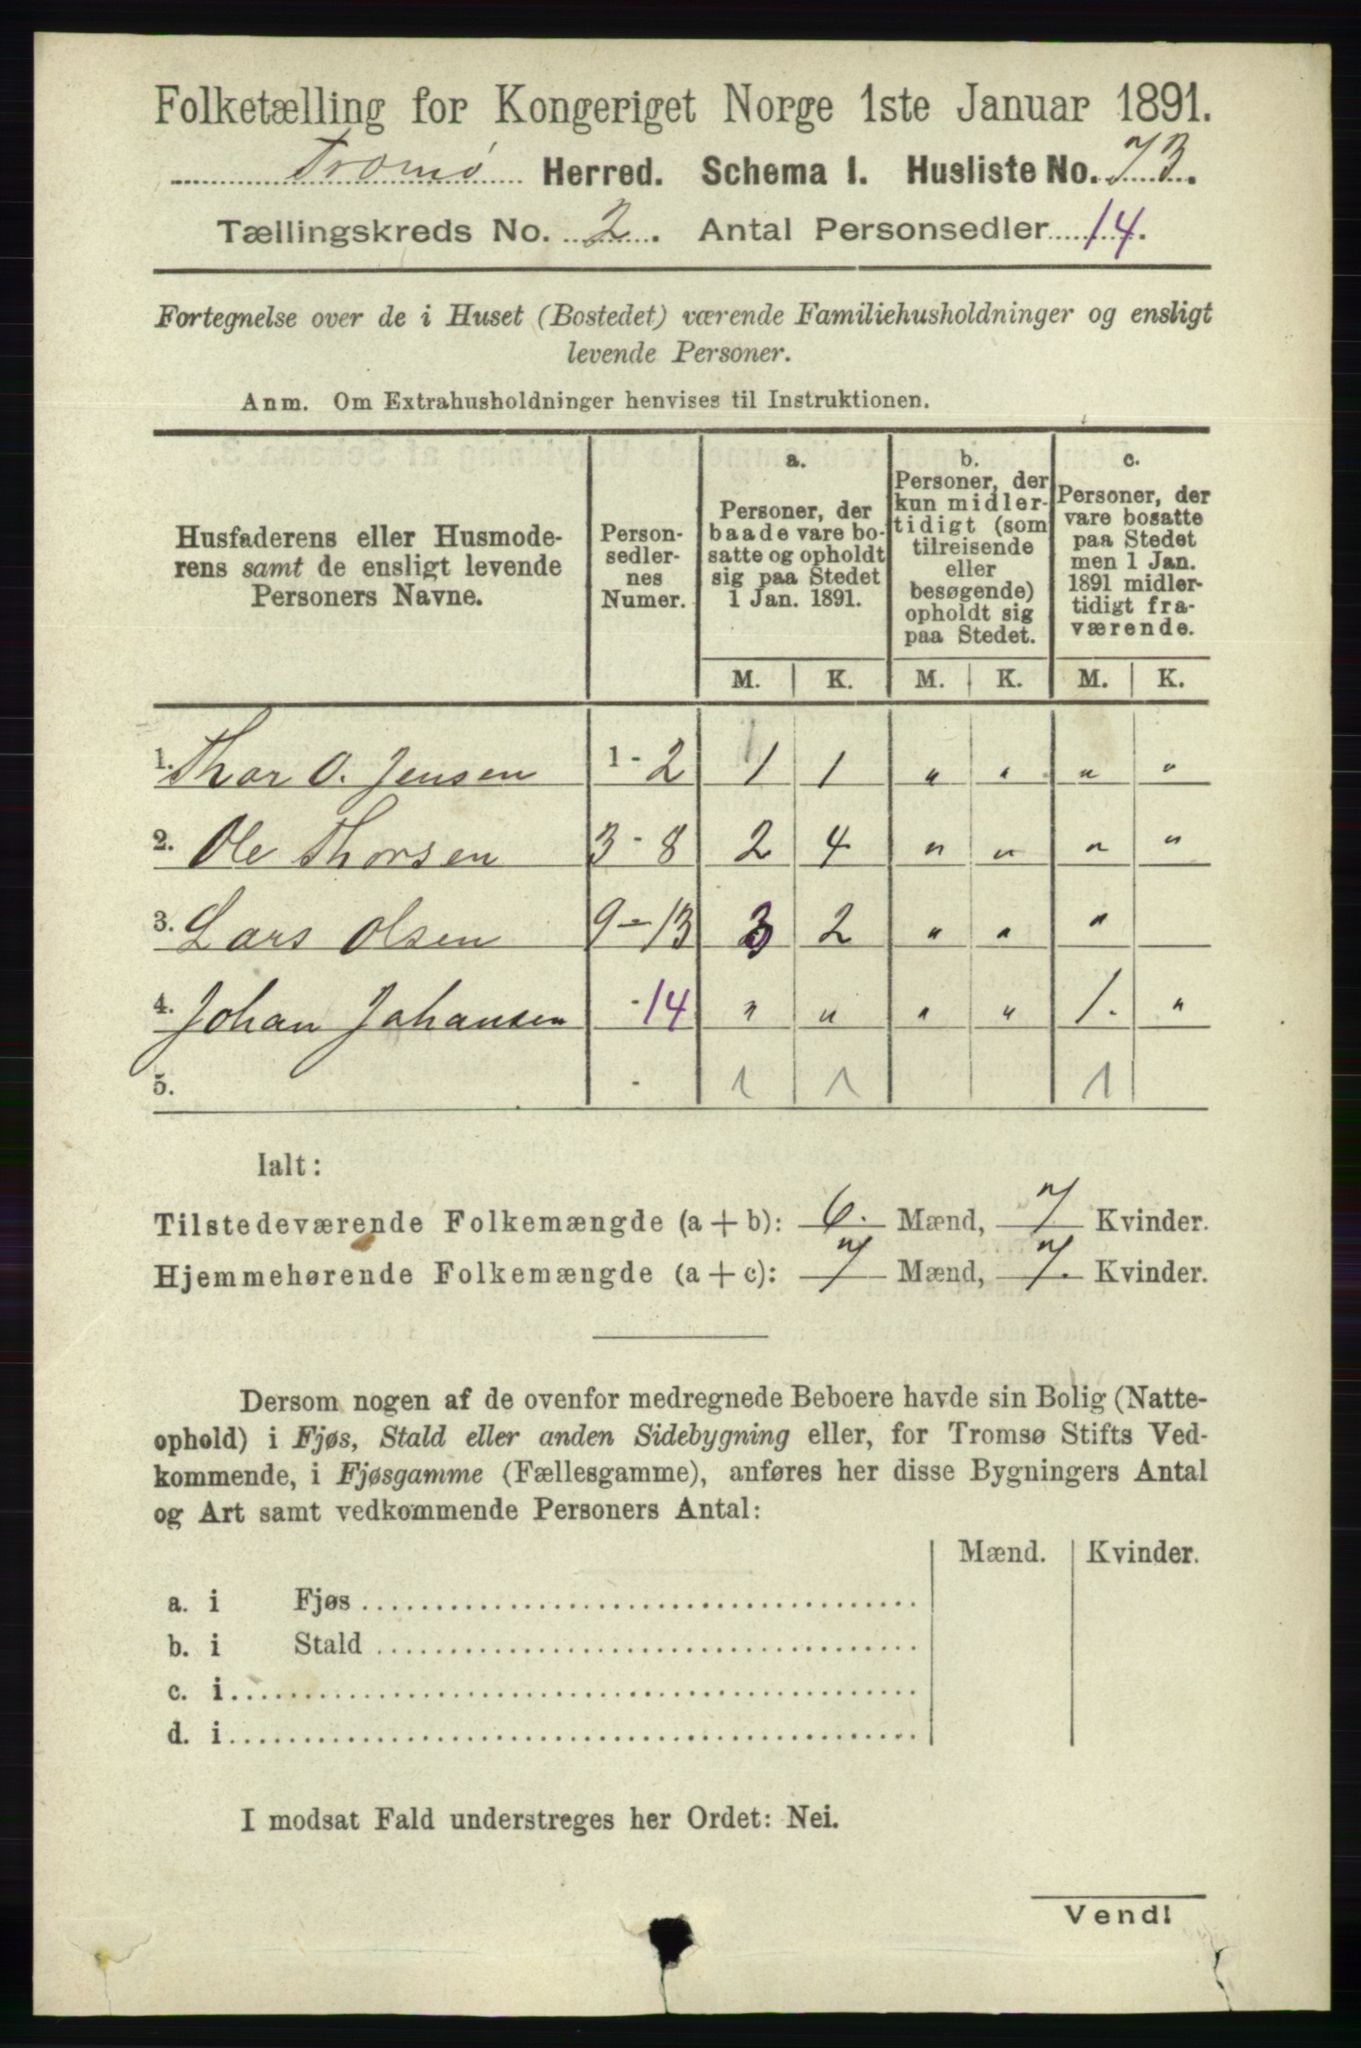 Folketælling for Kongeriget Norge 1ste Januar 1891.
Tromø Herred. Schema I. Husliste No. 73.
Tællingskreds No. 2. Antal Personsedler 14.
Fortegnelse over de i Huset (Bostedet) værende Familiehusholdninger og ensligt
levende Personer.
Anm. Om Extrahusholdninger henvises til Instruktionen.
Husfaderens eller Husmode-
rens samt de ensligt levende
Personers Navne.
Person-
sedler-
nes
Numer.
a.
Personer, der
baade vare bo-
satte og opholdt
sig paa Stedet
1 Jan. 1891.
b.
Personer, der
kun midler-
tidigt (som
tilreisende
eller
besøgende)
opholdt sig
paa Stedet.
c.
Personer, der
vare bosatte
paa Stedet
men 1 Jan.
1891 midler-
tidigt fra-
værende.
M. K. M. K. M. K.
1. Thor O. Jensen 1 - 2 1 1 " " " "
2. Ole Thorsen 3 - 8 2 4 " " " "
3. Lars Olsen 9 - 13 3 2 " " "
4. Johan Johansen - 14 " " " " 1. "
5. - 1 1 1
Ialt:
Tilstedeværende Folkemængde (a + b): 6. Mænd, 7 Kvinder.
Hjemmehørende Folkemængde (a + c): 7 Mænd, 7. Kvinder.
Dersom nogen af de ovenfor medregnede Beboere havde sin Bolig (Natte-
ophold) i Fjøs, Stald eller anden Sidebygning eller, for Tromsø Stifts Ved-
kommende, i Fjøsgamme (Fællesgamme), anføres her disse Bygningers Antal
og Art samt vedkommende Personers Antal:
Mænd. Kvinder.
a. i Fjøs
b. i Stald
c. i
d. i
I modsat Fald understreges her Ordet: Nei.
Vend!